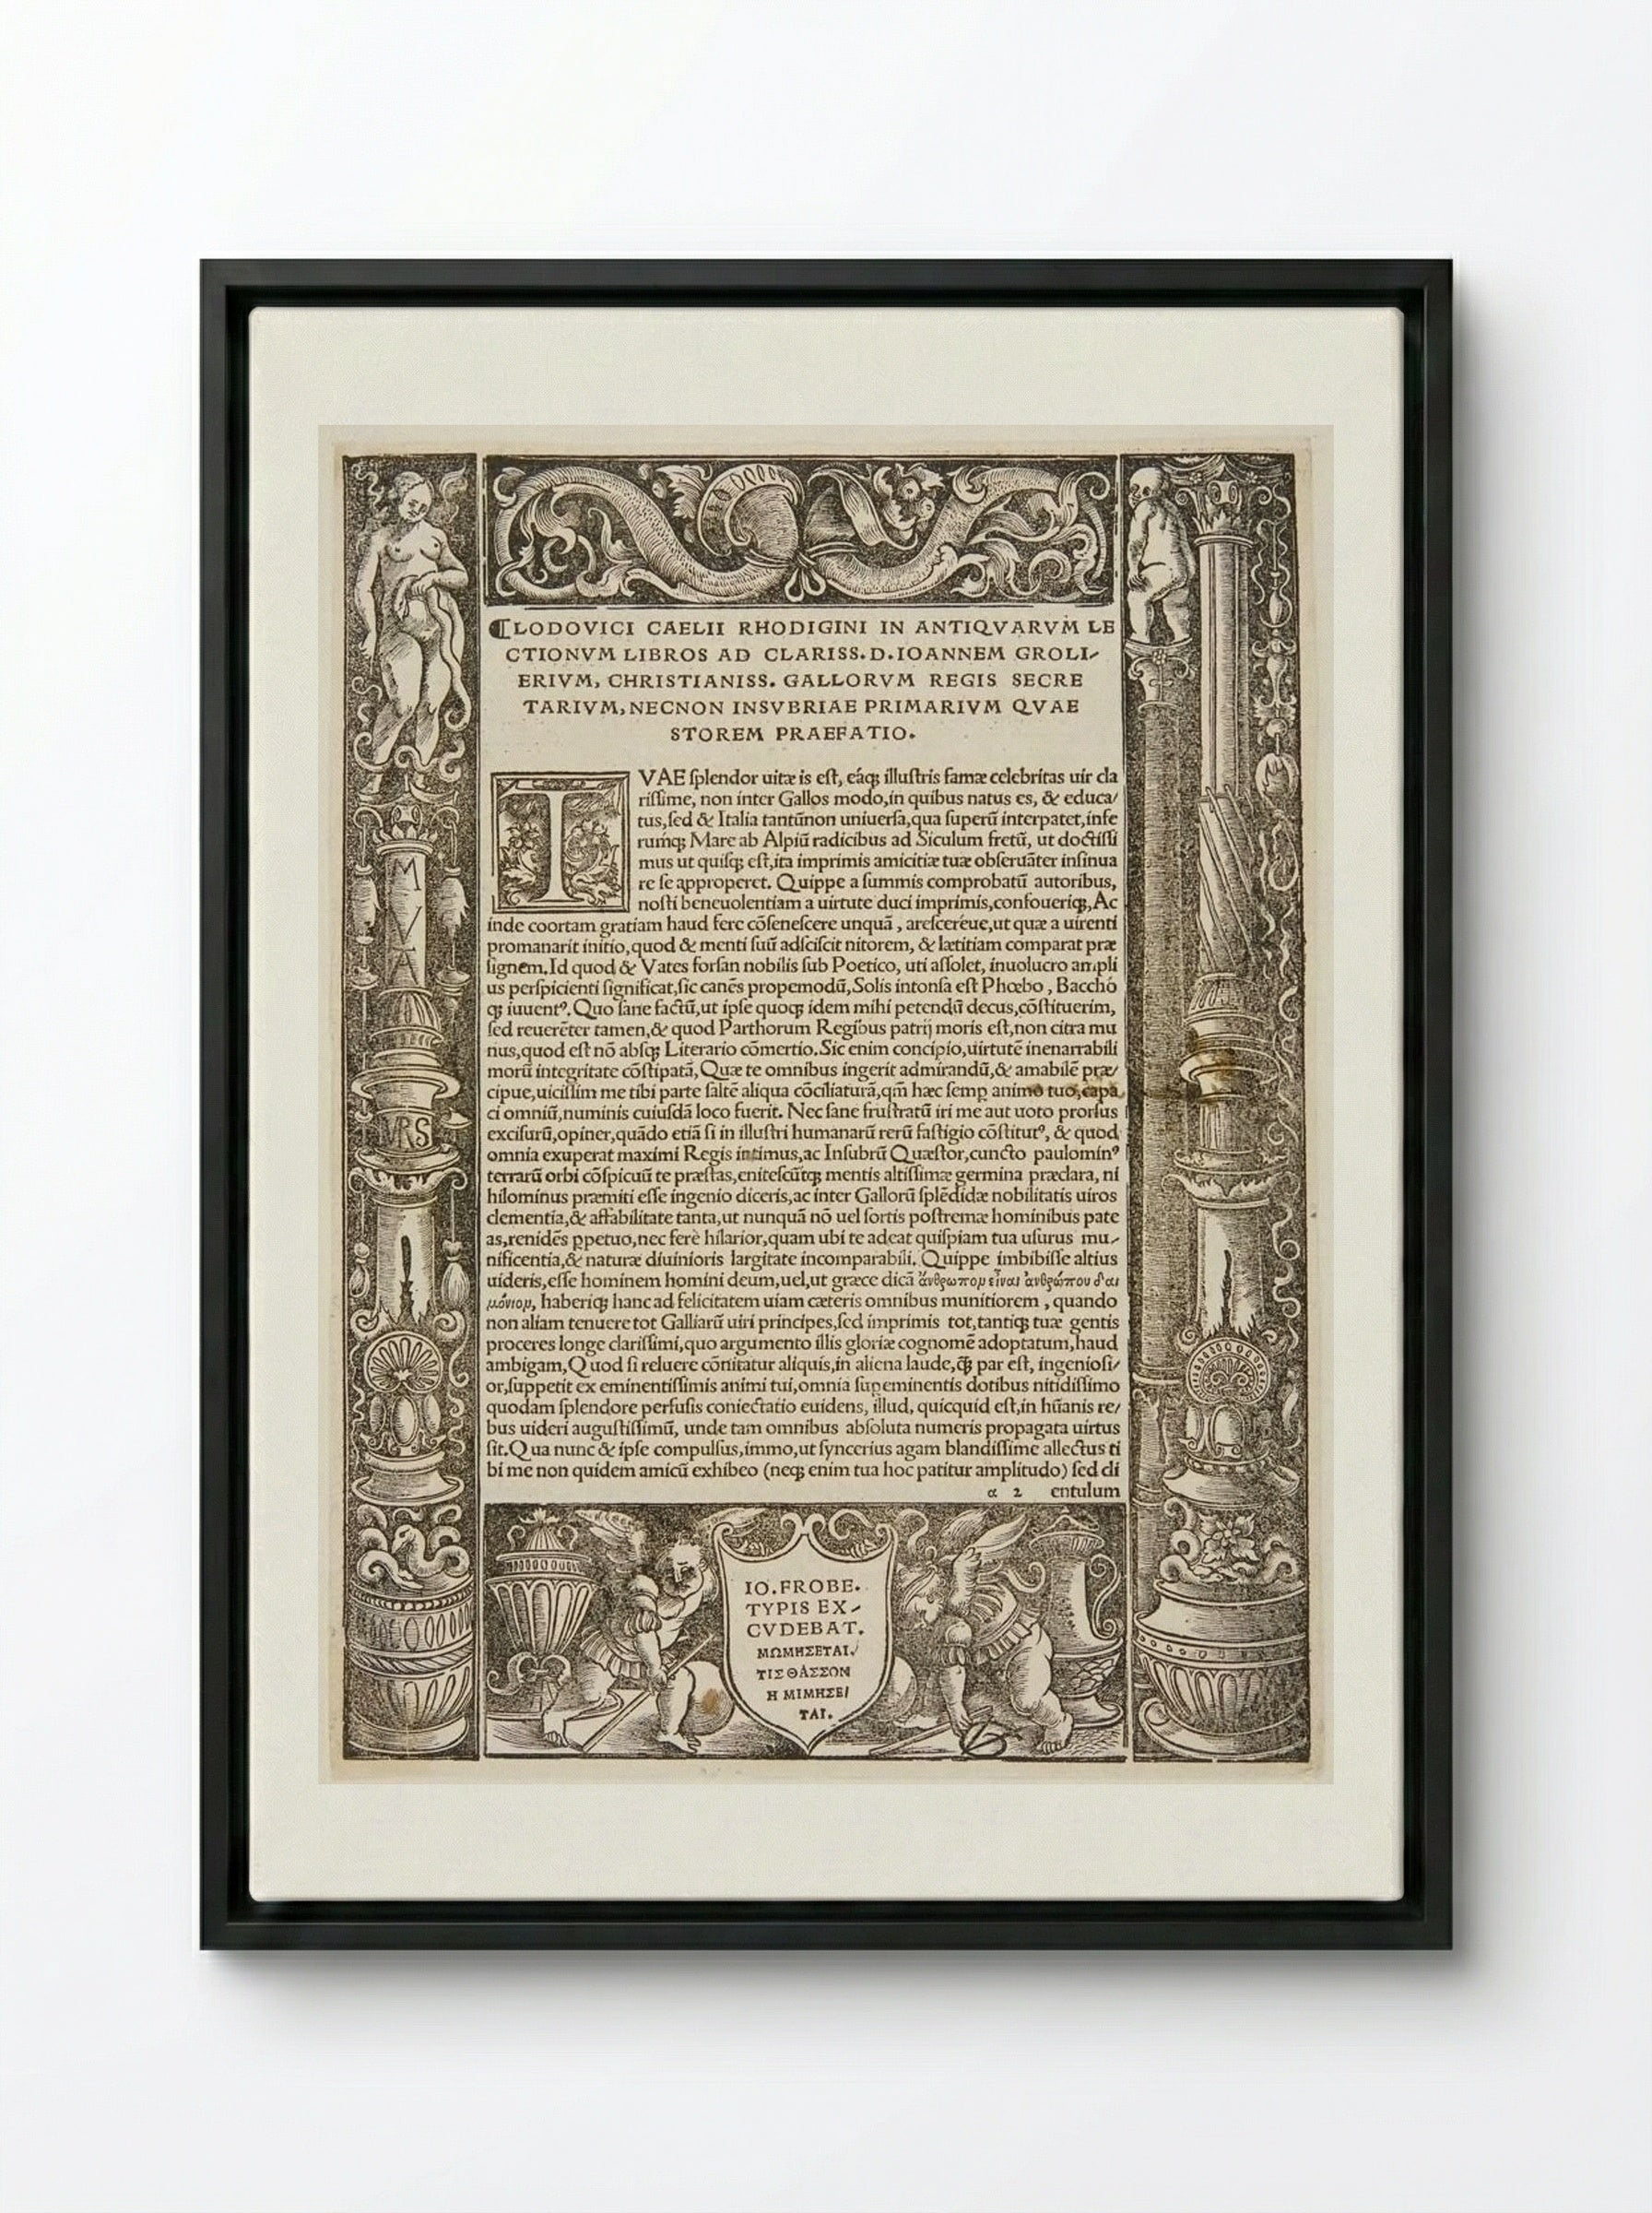 LODOVICI CAELII RHODIGINI IN ANTIQVARVM LE
CTIONVM LIBROS AD CLARISS. D. IOANNEM GROLI-
ERIVM, CHRISTIANISS. GALLORVM REGIS SECRE
TARIVM, NECNON INSVBRIAE PRIMARIVM QVAE
STOREM PRAEFATIO.
TVAE ſplendor uitæ is eſt, eáq; illuſtris famæ celebritas uir cla
riſſime, non inter Gallos modo, in quibus natus es, & educa/
tus, ſed & Italia tantũnon uniuerſa, qua ſuperũ interpatet, infe
rumq; Mare ab Alpiũ radicibus ad Siculum fretũ, ut doctiſſi
mus ut quiſq; eſt, ita imprimis amicitiæ tuæ obſeruãter inſinua
re ſe approperet. Quippe a ſummis comprobatũ autoribus,
noſti beneuolentiam a uirtute duci imprimis, confoueriq;, Ac
inde coortam gratiam haud fere cõſeneſcere unquã, areſcereue, ut quæ a uirenti
promanarit initio, quod & menti ſuũ adſciſcit nitorem, & lætitiam comparat præ
ſignem. Id quod & Vates forſan nobilis ſub Poetico, uti aſſolet, inuolucro ampli
us perſpicienti ſignificat, ſic canẽs propemodũ, Solis intonſa eſt Phœbo, Bacchó
q; iuuentꝰ. Quo ſane factũ, ut ipſe quoq; idem mihi petendũ decus, cõſtituerim,
ſed reuerẽter tamen, & quod Parthorum Regibus patrij moris eſt, non citra mu
nus, quod eſt nõ abſq; Literario cõmertio. Sic enim concipio, uirtutẽ inenarrabili
morũ integritate cõſtipatã, Quæ te omnibus ingerit admirandũ, & amabilẽ præ/
cipue, uiciſſim me tibi parte ſaltẽ aliqua cõciliaturã, qm̃ hæc ſemp animo tuo, capa
ci omniũ, numinis cuiuſdã loco fuerit. Nec ſane fruſtratũ iri me aut uoto prorſus
exciſurũ, opiner, quãdo etiã ſi in illuſtri humanarũ rerũ faſtigio cõſtitutꝰ, & quod
omnia exuperat maximi Regis intimus, ac Inſubrũ Quæſtor, cuncto paulominꝰ
terrarũ orbi cõſpicuũ te præſtas, eniteſcũtq; mentis altiſſimæ germina præclara, ni
hilominus præmiti eſſe ingenio diceris, ac inter Gallorũ ſplẽdidæ nobilitatis uiros
clementia, & affabilitate tanta, ut nunquã nõ uel ſortis poſtremæ hominibus pate
as, renidẽs ꝑpetuo, nec ferè hilarior, quam ubi te adeat quiſpiam tua uſurus mu-
nificentia, & naturæ diuinioris largitate incomparabili. Quippe imbibiſſe altius
uideris, eſſe hominem homini deum, uel, ut græce dicã ἄνθρωπον εἶναι ἀνθρώπου δαι
μόνιον, haberiq; hanc ad felicitatem uiam cæteris omnibus munitiorem, quando
non aliam tenuere tot Galliarũ uiri principes, ſed imprimis tot, tantiq; tuæ gentis
proceres longe clariſſimi, quo argumento illis gloriæ cognomẽ adoptatum, haud
ambigam, Quod ſi reluere cõnitatur aliquis, in aliena laude, q̃q; par eſt, ingenioſi/
or, ſuppetit ex eminentiſſimis animi tui, omnia ſupeminentis dotibus nitidiſſimo
quodam ſplendore perfuſis coniectatio euidens, illud, quicquid eſt, in hũanis re/
bus uideri auguſtiſſimũ, unde tam omnibus abſoluta numeris propagata uirtus
ſit. Qua nunc & ipſe compulſus, immo, ut ſyncerius agam blandiſſime allectus ti
bi me non quidem amicũ exhibeo (neq; enim tua hoc patitur amplitudo) ſed cli
α 2 entulum
MVA
VRS
IO. FROBE.
TYPIS EX-
CVDEBAT.
ΜΩΜΗΣΕΤΑΙ
ΤΙΣ ΘΑΣΣΟΝ
Η ΜΙΜΗΣΕΙ
ΤΑΙ.